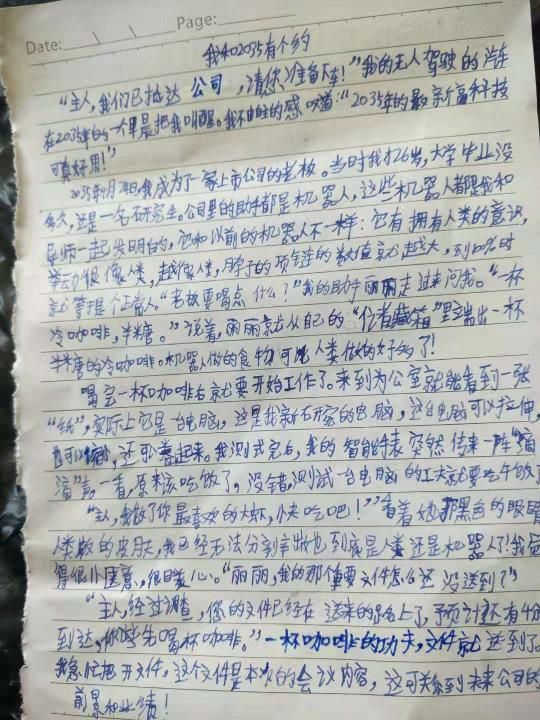 Date:
Page:
我和2035有个约
“主人,我们已抵达 公司 ,请您准备下车!”我的无人驾驶的汽车
在2035年的一个早晨把我叫醒。我不由的感叹道:“2035年的最新高科技
可真好用!”
2035年9月28日,我成为了一家上市公司的老板。当时我才26岁,大学毕业没
多久,还是一名研究生。公司里的助手都是机器人,这些机器人都是我和
导师一起发明的,它和以前的机器人不一样:它有拥有人类的意识,
举动很像人类,越像人类,脖子的项链的数值就越大,到100%时
就等于是个正常人。“老板要喝点什么?”我的助手丽丽走过来问我。“一杯
冷咖啡,半糖。”说着,丽丽就从自己的“储藏箱”里端出一杯
半糖的冷咖啡。机器人做的食物可比人类做的好多了!
喝完一杯咖啡后就要开始工作了。来到办公室就能看到一张
“纸”,实际上它是一台电脑,这是我新研究的电脑,这台电脑可以拉伸,
也可以缩小,还可以卷起来。我测试完后,我的智能手表突然传来一阵“滴
滴”声,一看,原来该吃饭了。没错,测试一台电脑的工夫就要吃午饭了
“主人,我做了你最喜欢的大虾,快吃吧!”看着她那黑色的眼睛
人类般的皮肤,我已经无法分别她到底是人类还是机器人了!我
得很满意,很自然心。“丽丽,我的那个重要文件怎么还没送到?”
“主人,经过调查,您的文件已经在送来的路上了,预计还有4分
到达,你先喝杯咖啡。”一杯咖啡的功夫,文件就送到了。
我急忙把开文件,这个文件是本次的会议内容,这可关系到未来公司的
前景和业绩!